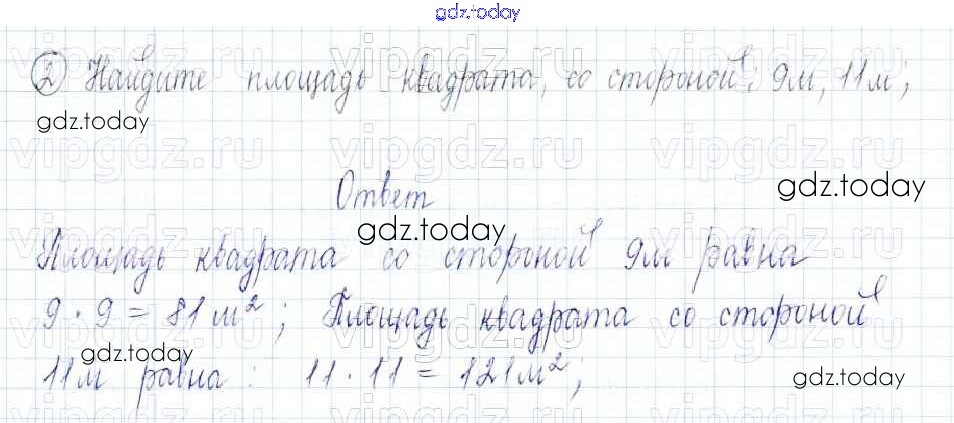 gdz.today
② Найдите площадь квадрата, со стороной: 9м, 11м;
gdz.today
vipgdz.ru vipgdz.ru vipgdz.ru
Ответ
gdz.today
gdz.today
Площадь квадрата со стороной 9м равна
9 · 9 = 81 м²; Площадь квадрата со стороной
gdz.today
11м равна: 11 · 11 = 121м²;
gdz.today